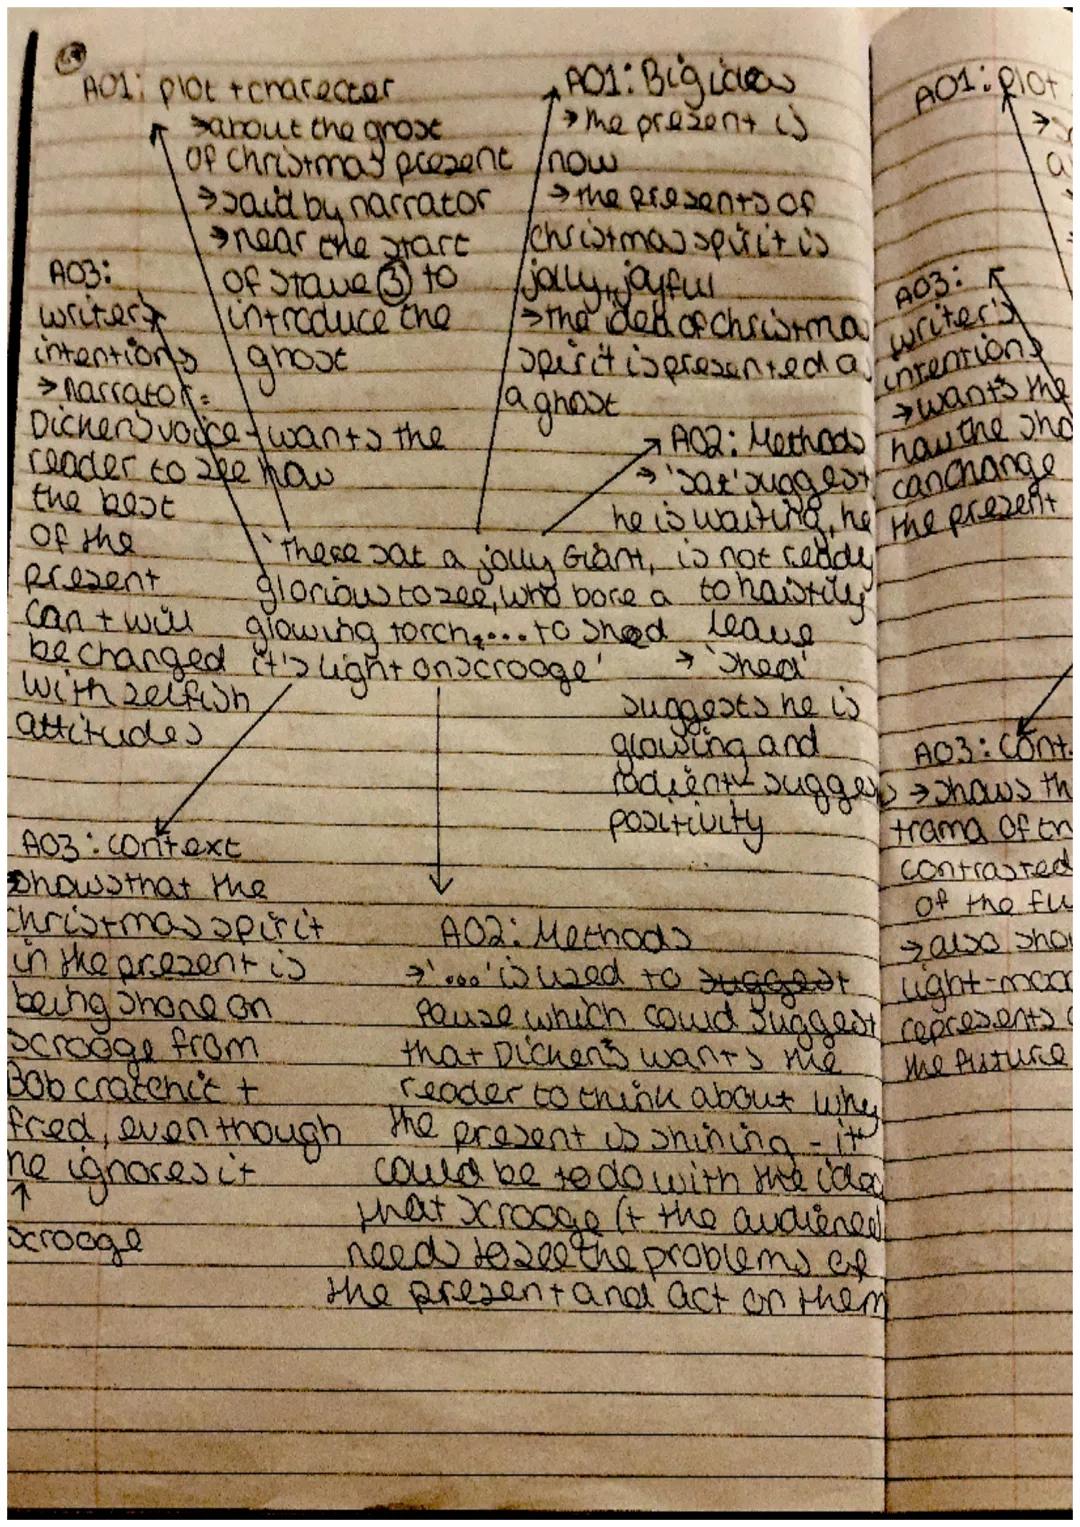 AO1: plot + charecter
→about the ghost
of Christmas present
→said by narrator
→near the start
of stave ③ to
introduce the
ghost
AO1: Big ideas
→the present is
now
→the presents of
christmas spirit is
jolly, joyful
→the idea of christma
spirit is presented as
a ghost
AO3:
writer's
intentions
→narrator=
Dicken's voice - wants the
reader to see how
the best
of the
present
can + will
be changed
with selfish
attitudes
AO2: Methods
→'sat' suggest
he is waiting, he
is not ready
to haistily
leave
→'shed'
suggests he is
glowing and
radient - suggests
positivity
'There sat a jolly Giant,
glorious to see, who bore a
glowing torch,... to shed
it's light on scrooge'
AO3: context
shows that the
christmas spirit
in the present is
being shone on
scrooge from
Bob cratchit +
fred, even though
he ignores it
↑
scrooge
AO2: Methods
→'...' is used to suggest
pause which could suggest
that Dicken's wants the
reader to think about why
the present is shining - it
could be to do with the idea
that scrooge (+ the audience)
needs to see the problems of
the present and act on them
AO1: plot
AO3:
writer's
intentions
→wants the
how the sha
can change
the present
AO3: Cont
→shows th
trama of th
contrasted
of the fu
→also sho
light-
represents
the future